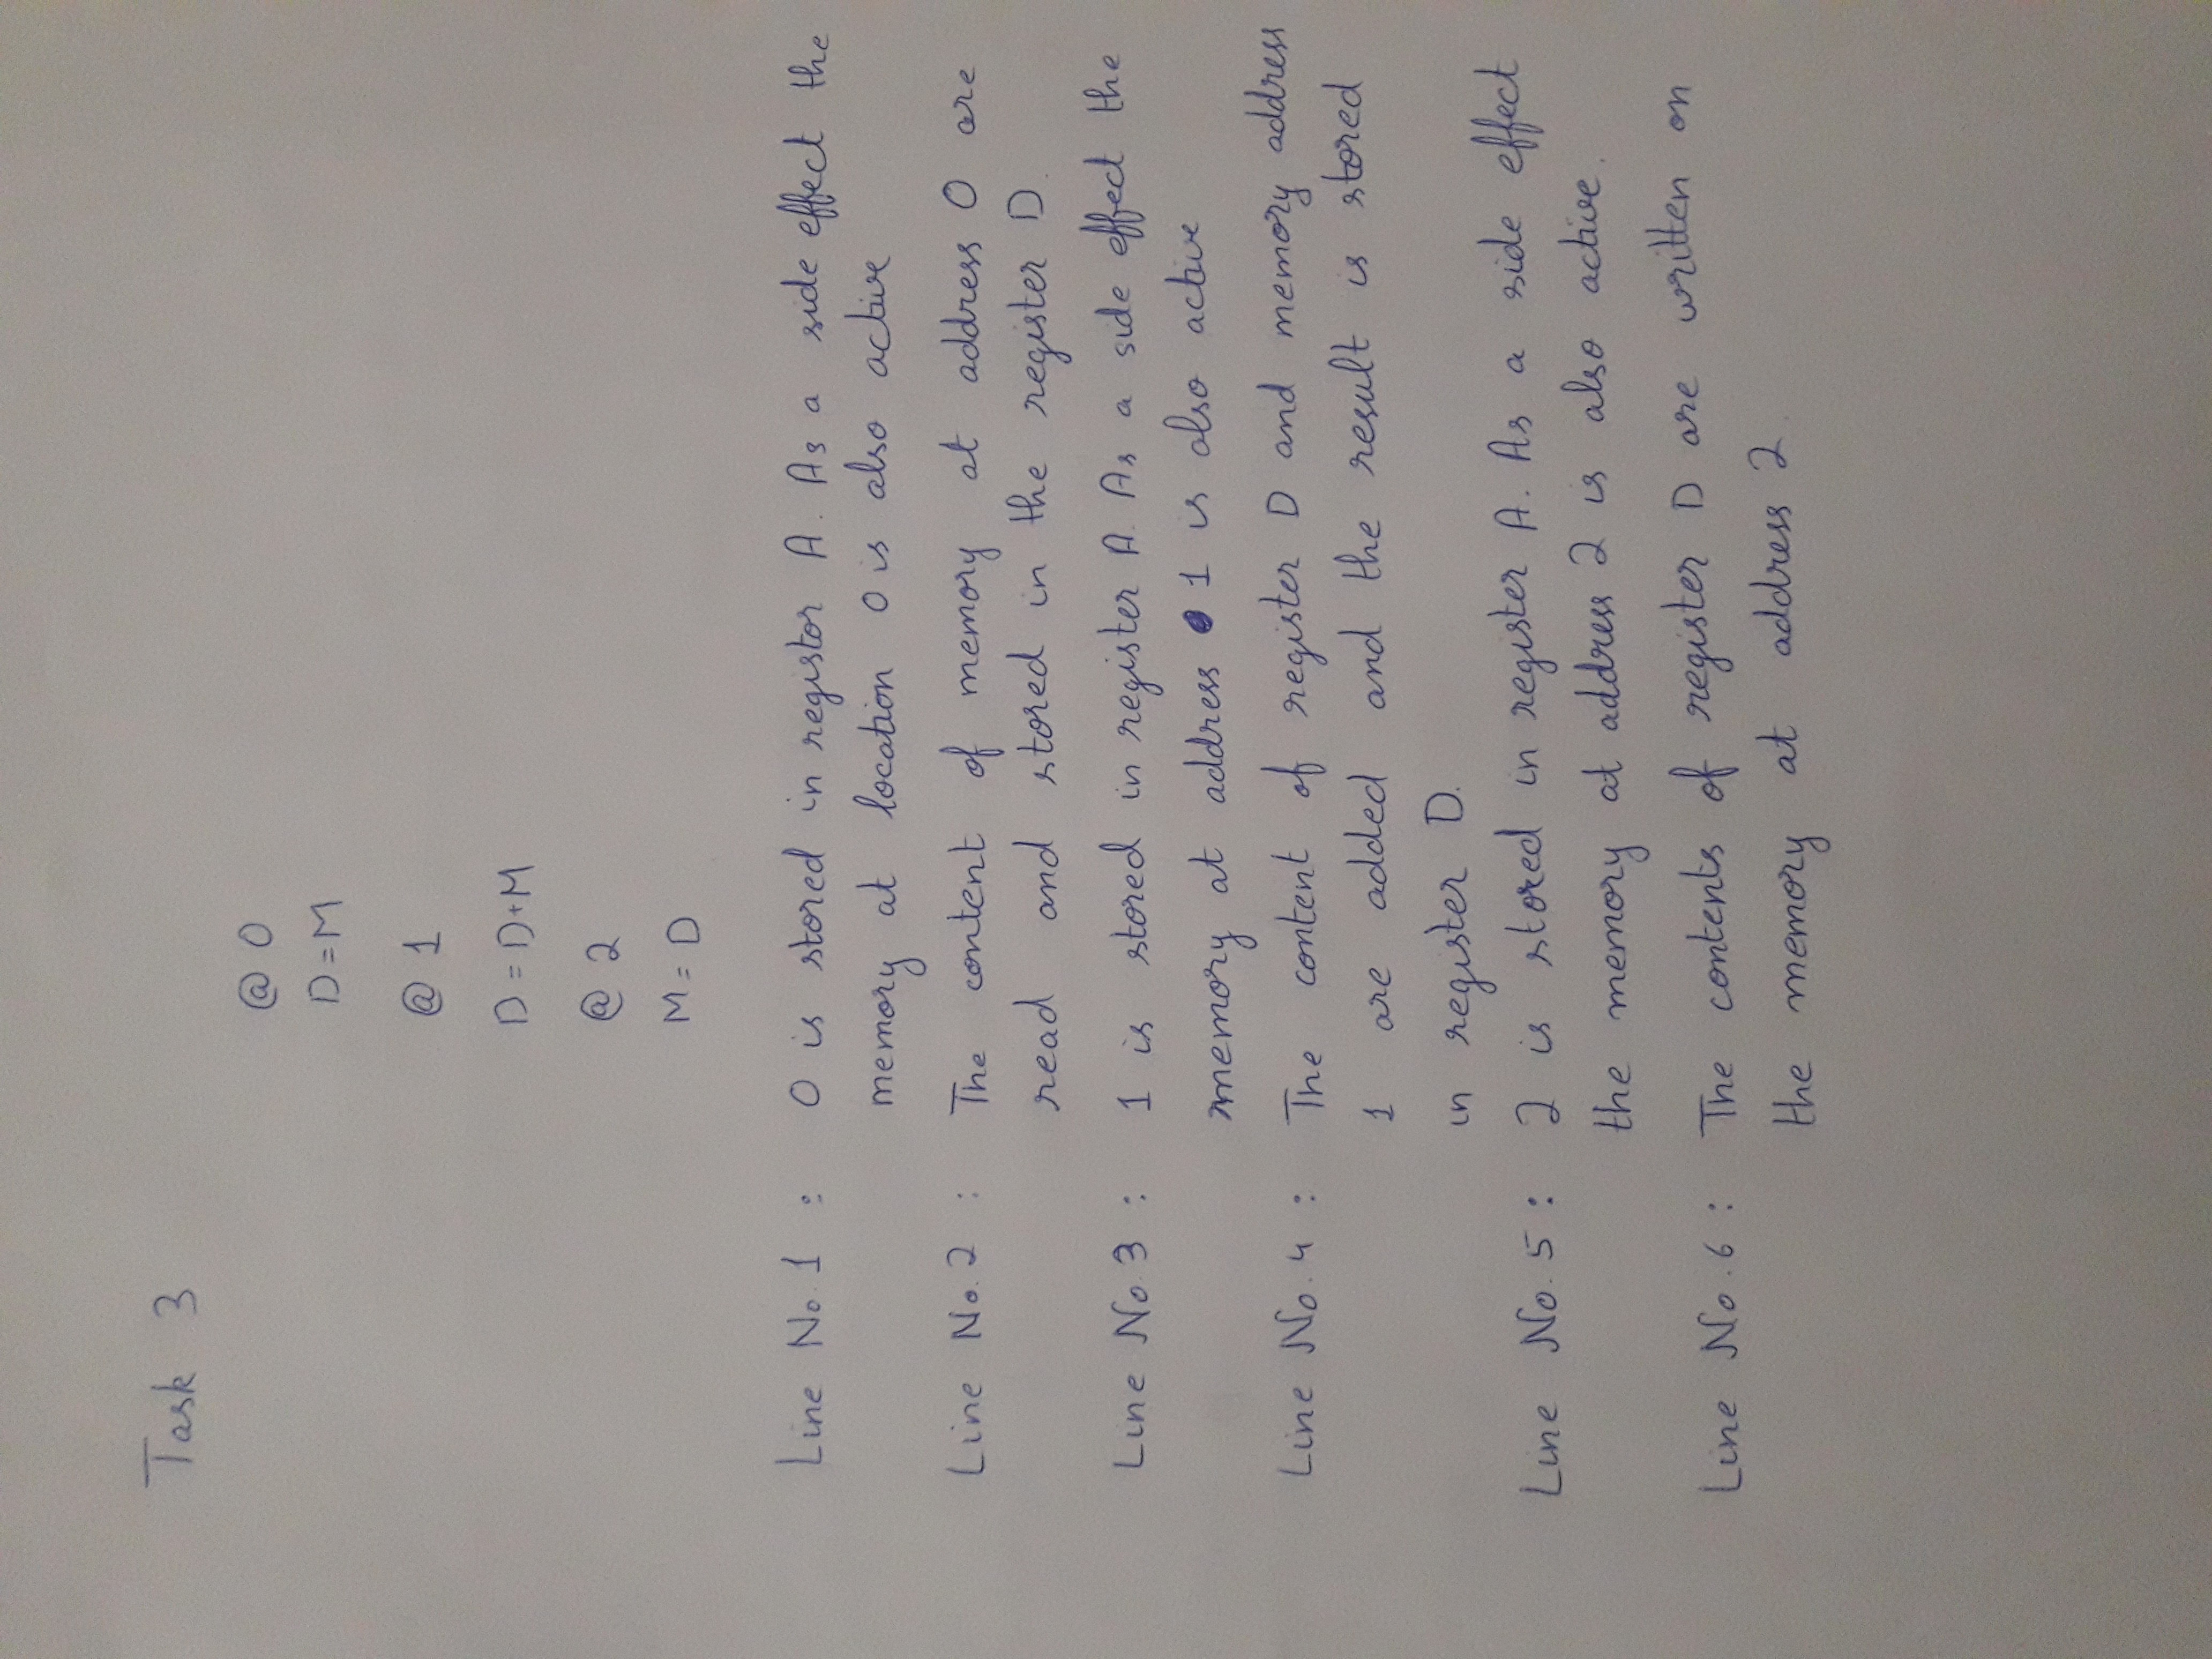 Task 3
@ 0
D=M
@ 1
D = D+M
@ 2
M = D
Line No. 1 : 0 is stored in registor A. As a side effect the
memory at location 0 is also active
Line No. 2 : The content of memory at address 0 are
read and stored in the register D.
Line No. 3 : 1 is stored in register A. As a side effect the
memory at address 1 is also active
Line No. 4 : The content of register D and memory address
1 are added and the result is stored
in register D.
Line No. 5 : 2 is stored in register A. As a side effect
the memory at address 2 is also active.
Line No. 6 : The contents of register D are written on
the memory at address 2.